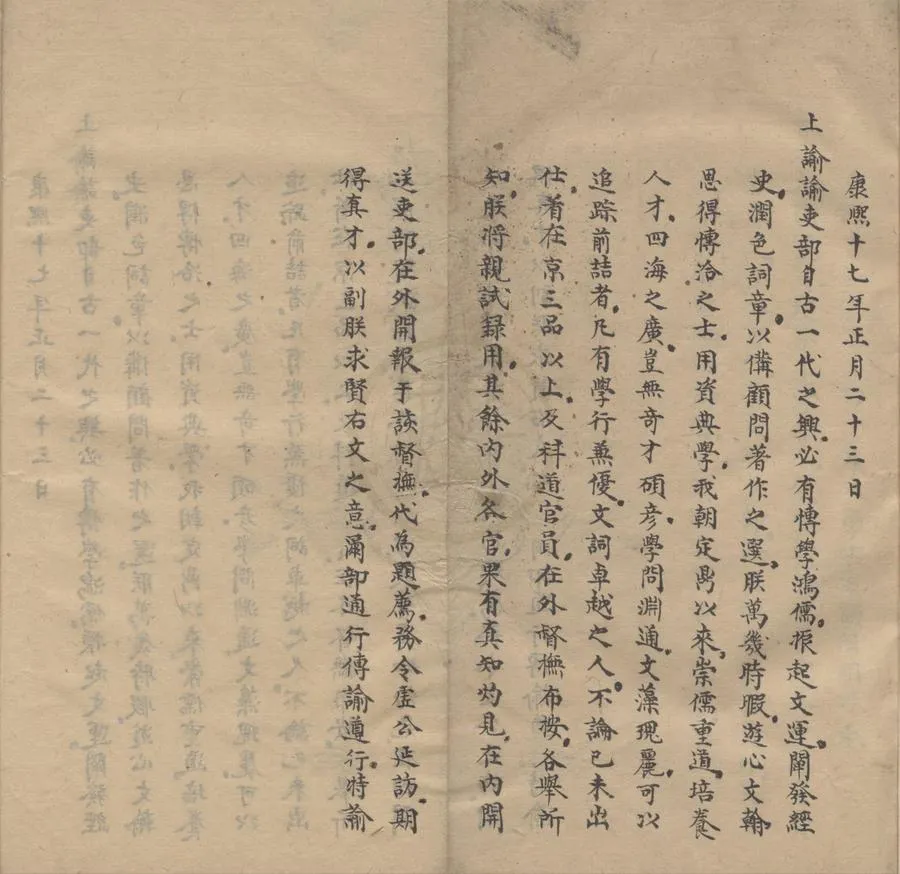 康熙十七年正月二十三日
上諭諭吏部自古一代之興必有愽學鴻儒振起文運闡發經
史潤色詞章以備顧問著作之選朕萬幾時暇遊心文翰
思得愽洽之士用資典學我朝定鼎以來崇儒重道培養
人才四海之廣豈無奇才碩彥學問淵通文藻瑰麗可以
追踪前喆者凡有學行兼優文詞卓越之人不論已未出
仕着在京三品以上及科道官員在外督撫布按各舉所
知朕将親試録用其餘内外各官果有真知灼見在内開
送吏部在外開報于該督撫代為題薦務令虚公延訪期
得真才以副朕求賢右文之意爾部通行傳諭遵行特諭